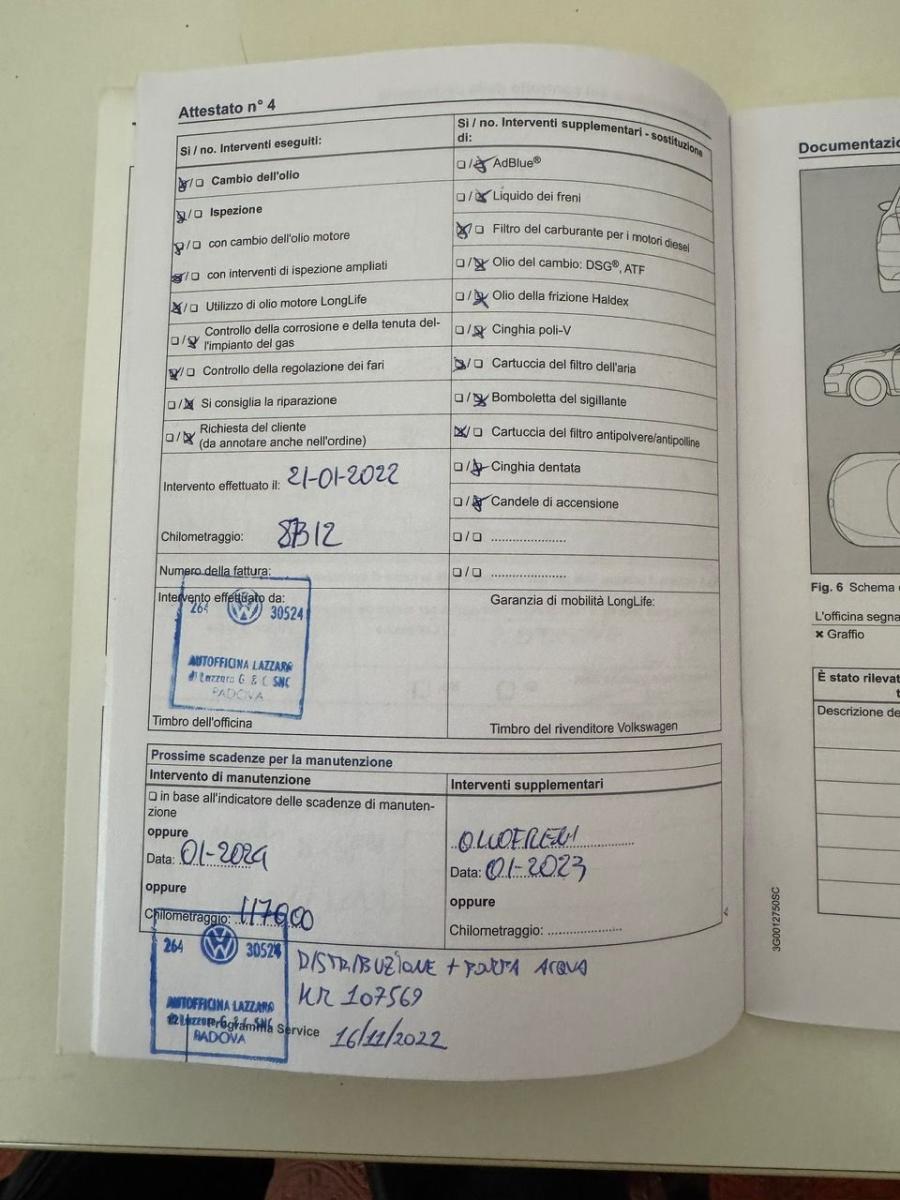 Attestato n° 4
Sì / no. Interventi eseguiti:
☒/☐ Cambio dell'olio
☒/☐ Ispezione
☒/☐ con cambio dell'olio motore
☒/☐ con interventi di ispezione ampliati
☒/☐ Utilizzo di olio motore LongLife
☐/☒ Controllo della corrosione e della tenuta del-
l'impianto del gas
☒/☐ Controllo della regolazione dei fari
☐/☒ Si consiglia la riparazione
☐/☒ Richiesta del cliente
(da annotare anche nell'ordine)
Intervento effettuato il: 21-01-2022
Chilometraggio:
Numero della fattura:
Intervento effettuato da:
264 30524
AUTOFFICINA LAZZARO
di Lazzaro G & C SNC
PADOVA
Timbro dell'officina
Sì / no. Interventi supplementari - sostituzione
di:
☐/☒ AdBlue®
☐/☒ Liquido dei freni
☒/☐ Filtro del carburante per i motori diesel
☐/☒ Olio del cambio: DSG®, ATF
☐/☒ Olio della frizione Haldex
☐/☒ Cinghia poli-V
☒/☐ Cartuccia del filtro dell'aria
☐/☒ Bomboletta del sigillante
☒/☐ Cartuccia del filtro antipolvere/antipolline
☐/☒ Cinghia dentata
☐/☒ Candele di accensione
☐/☐ .....................
☐/☐ .....................
Garanzia di mobilità LongLife:
Timbro del rivenditore Volkswagen
Prossime scadenze per la manutenzione
Intervento di manutenzione
☐ in base all'indicatore delle scadenze di manuten-
zione
oppure
Data: 01-2024
oppure
Chilometraggio:
Interventi supplementari
Data: 01-2023
oppure
Chilometraggio: .....................
264 30524
AUTOFFICINA LAZZARO
PADOVA
Programma Service
DISTRIBUZIONE + POMPA ACQUA
KM 107569
16/11/2022
3G0012750SC
Documentazio
Fig. 6 Schema
L'officina segna
× Graffio
È stato rilevat
Descrizione de